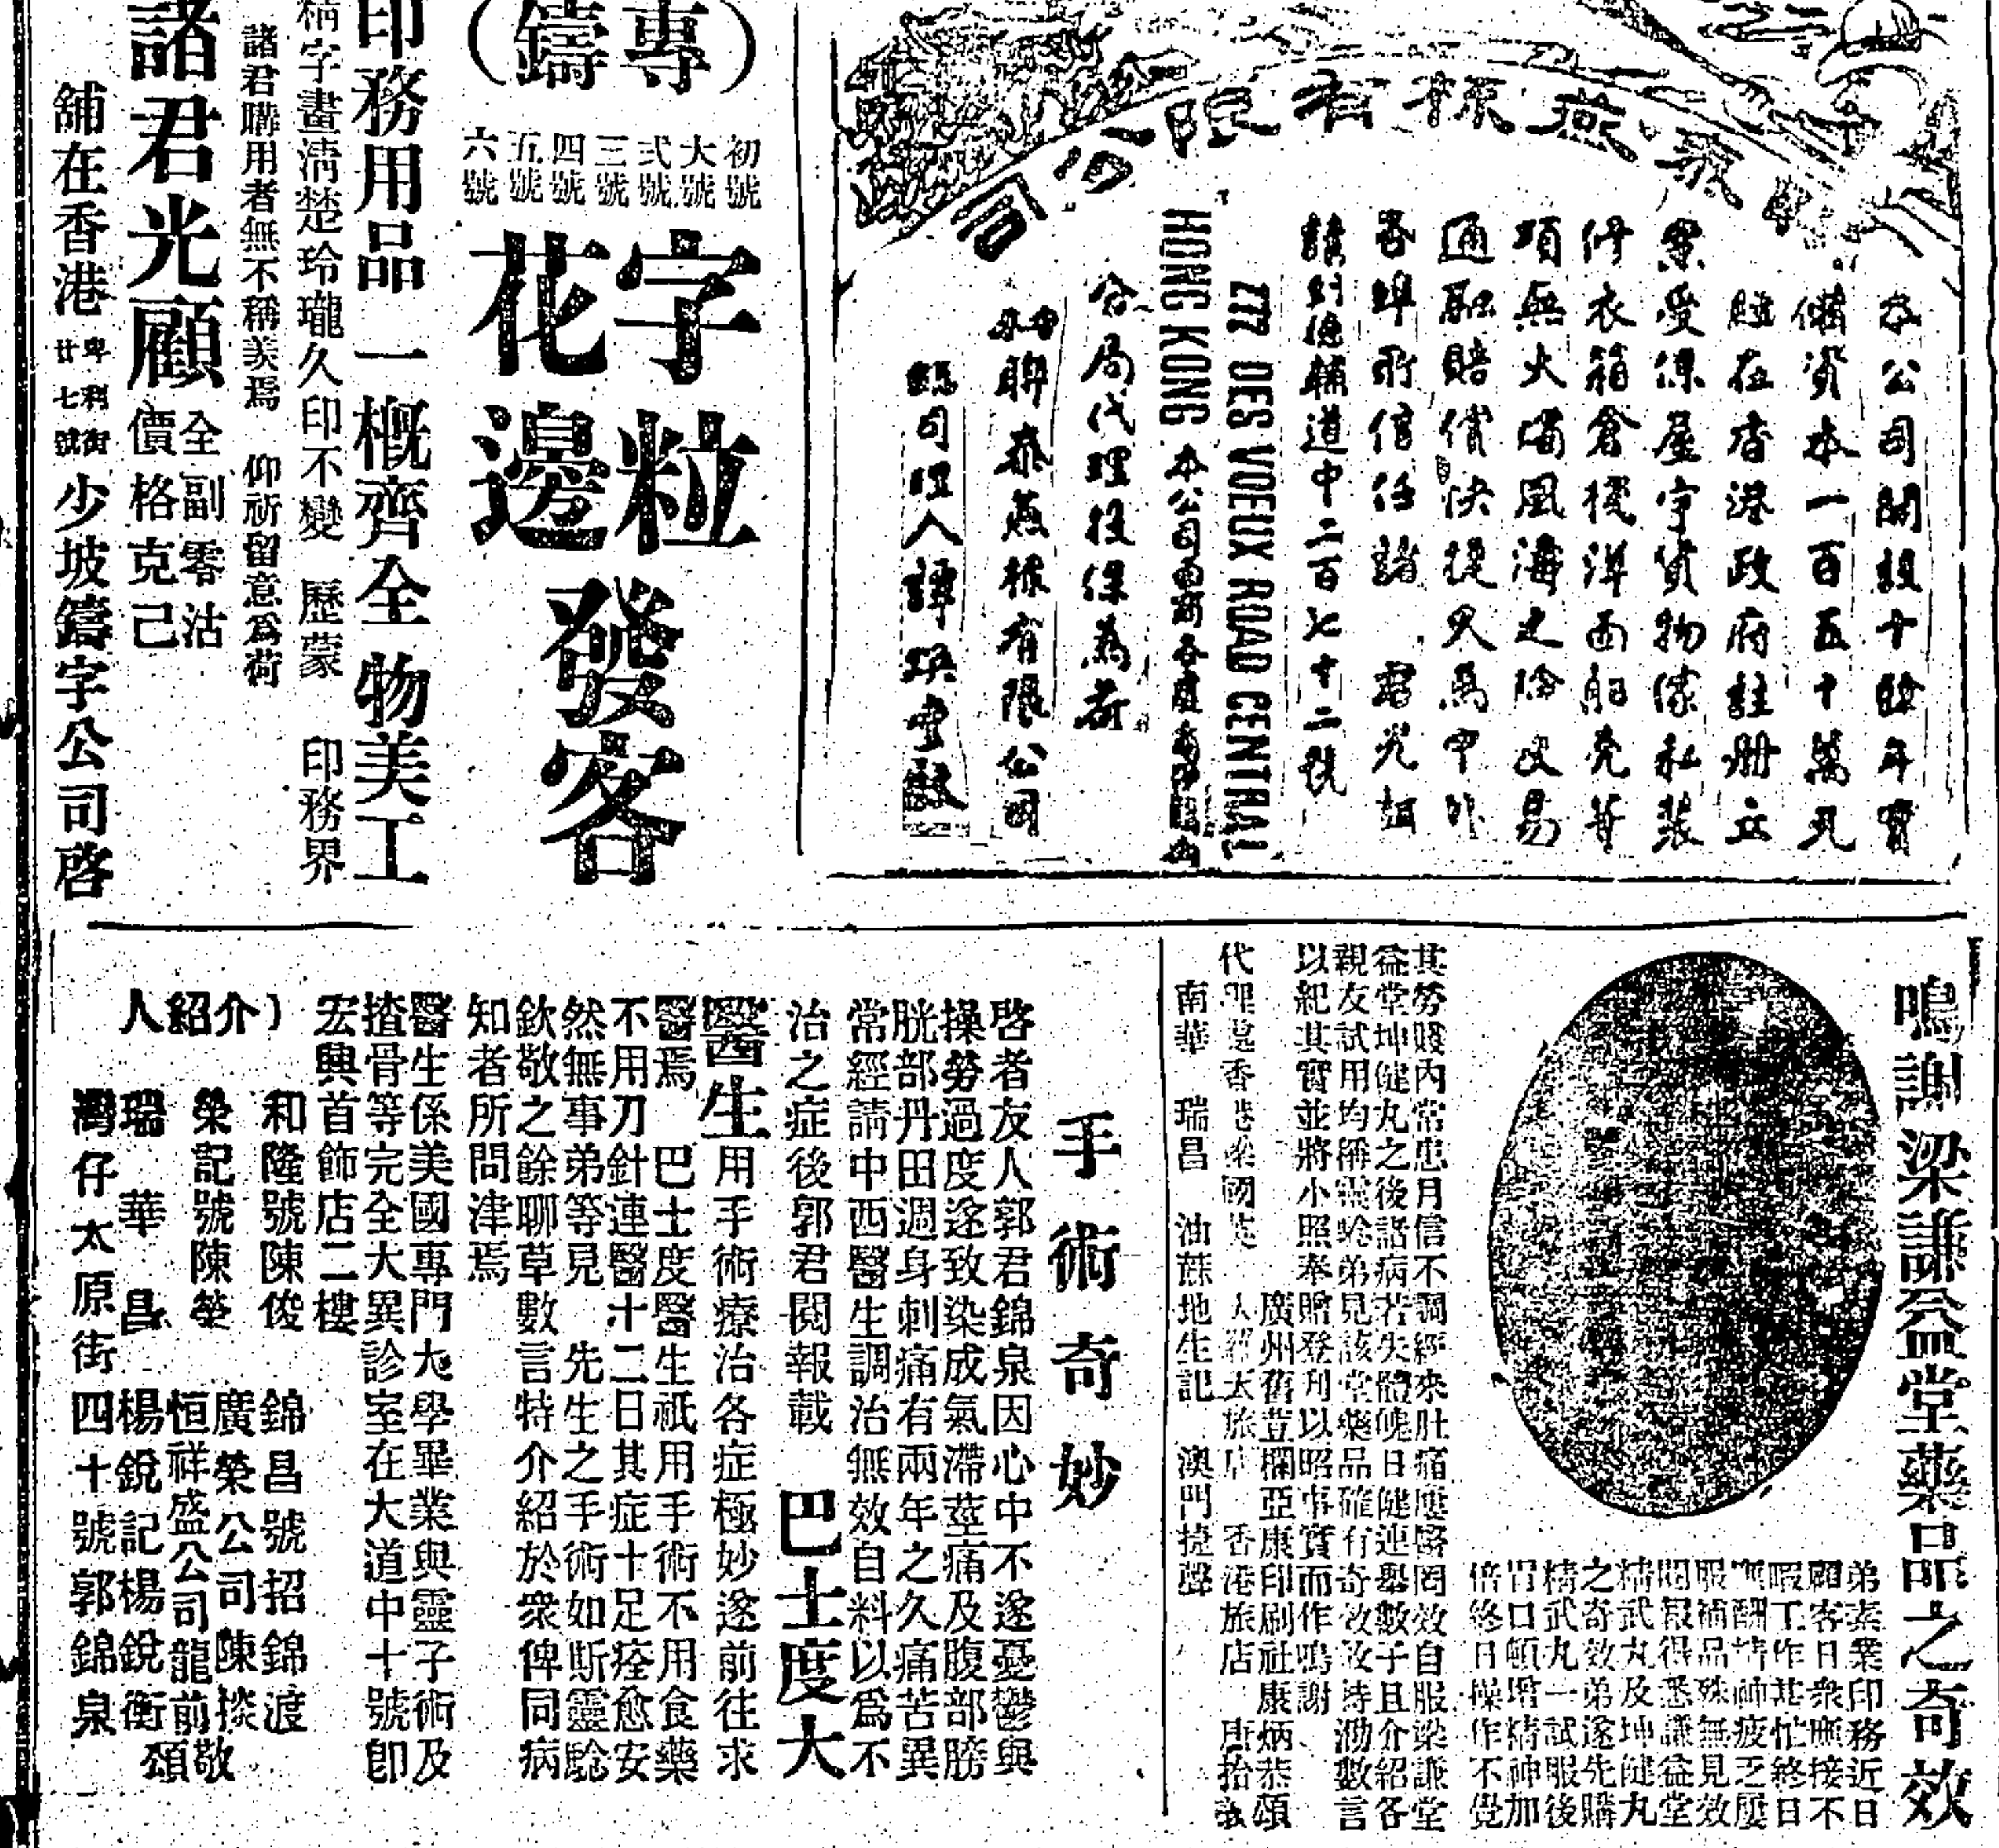 燕梳有限公司
本公司開設十餘年實
備資本一百五十萬元
註在香港政府註冊立
案受保屋宇貨物傢私裝
修衣箱倉棧洋面船壳等
項無火燭風濤之險交易
通融賠償快捷久為中外
各埠所信任諸 君光顧
請到德輔道中二百七十二號
272 DES VOEUX ROAD CENTRAL
HONG KONG
本公司
分局代理投保為荷
聯泰燕梳有限公司
總司理人譚煥堂啟
(專鑄)
初號
大號
弍號
三號
四號
五號
六號
字粒
花邊
發客
印務用品一概齊全物美工
精字畫清楚玲瓏久印不變 歷蒙 印務界
諸君購用者無不稱美焉 仰祈留意為荷
諸君光顧
全副零沽
價格克己
舖在香港
卑利街
廿七號
少坡鑄字公司啓
鳴謝梁謙益堂藥品之奇效
弟素業印務近日
顧客日衆應接不
暇工作甚忙終日
酬精神疲乏屢
服補品殊無見效
閱報得悉謙益堂
精武丸及坤健丸
之奇效弟遂先購
精武丸一試服後
胃口頓增精神加
倍終日操作不覺
其勞賤內常患月信不調經來肚痛屢醫罔效自服梁謙堂
益堂坤健丸之後諸病若失體魄日健連舉數子且介紹各
親友試用均稱靈騐弟見該堂藥品確有奇效故特泐數言
以紀其實並將小照奉贈登刊以昭事實而作鳴謝
廣州舊荳欄亞康印刷社康炳恭頌
代理處香港梁國英 大旅店 香港旅店 唐拾義
南華 瑞昌 油蔴地生記 澳門捷聲
手術奇妙
啓者友人郭君錦泉因心中不遂憂鬱與
操勞過度遂致染成氣滯莖痛及腹部膀
胱部丹田週身刺痛有兩年之久痛苦異
常經請中西醫生調治無效自料以爲不
治之症後郭君閱報載 巴士度大
醫生用手術療治各症極妙遂前往求
醫焉 巴士度醫生祇用手術不用食藥
不用刀針連醫十二日其症十足痊愈安
然無事弟等見 先生之手術如斯靈騐
欽敬之餘聊草數言特介紹於衆俾同病
知者所問津焉
醫生係美國專門大學畢業與靈子術及
揸骨等完全大異診室在大道中十號卽
宏興首飾店二樓
介紹人
和隆號陳俊 錦昌號招錦渡
榮記號陳榮 廣榮公司陳掞
恒祥盛公司龍前 敬頌
瑞華昌 楊銳記楊銳衡
灣仔太原街四十號郭錦泉